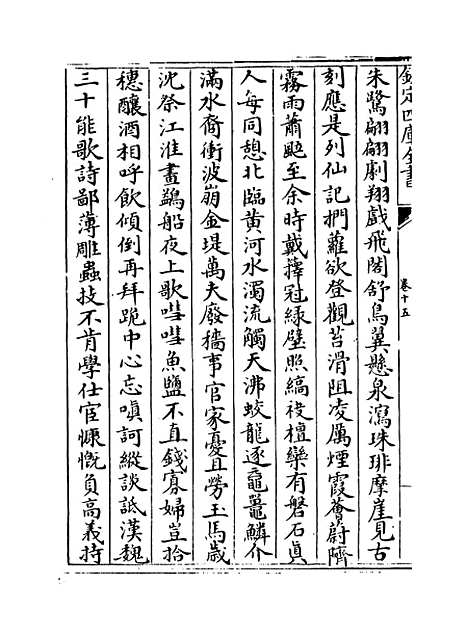 欽定四庫全書
卷十五
朱鷺翩翩劇翔戲飛閣舒鳥翼懸泉瀉珠琲摩崖見古
刻應是列仙記捫蘿欲登觀苔滑阻凌厲煙霞薈蔚隮
霧雨蕭颼至余時戴籜冠緑壁照縞袂檀欒有磐石真
人每同憩北臨黄河水濁流觸天沸蛟龍逐黿鼉鱗介
滿水裔衝波崩金堤萬夫廢穡事官家憂且勞玉馬歲
沈祭江淮畫鷁船夜上歌嘒嘒魚鹽不直錢寡婦豈拾
穗釀酒相呼飲傾倒再拜跪中心忘嗔訶縱談詆漢魏
三十能歌詩鄙薄雕蟲技不肯學仕宦慷慨負高義持